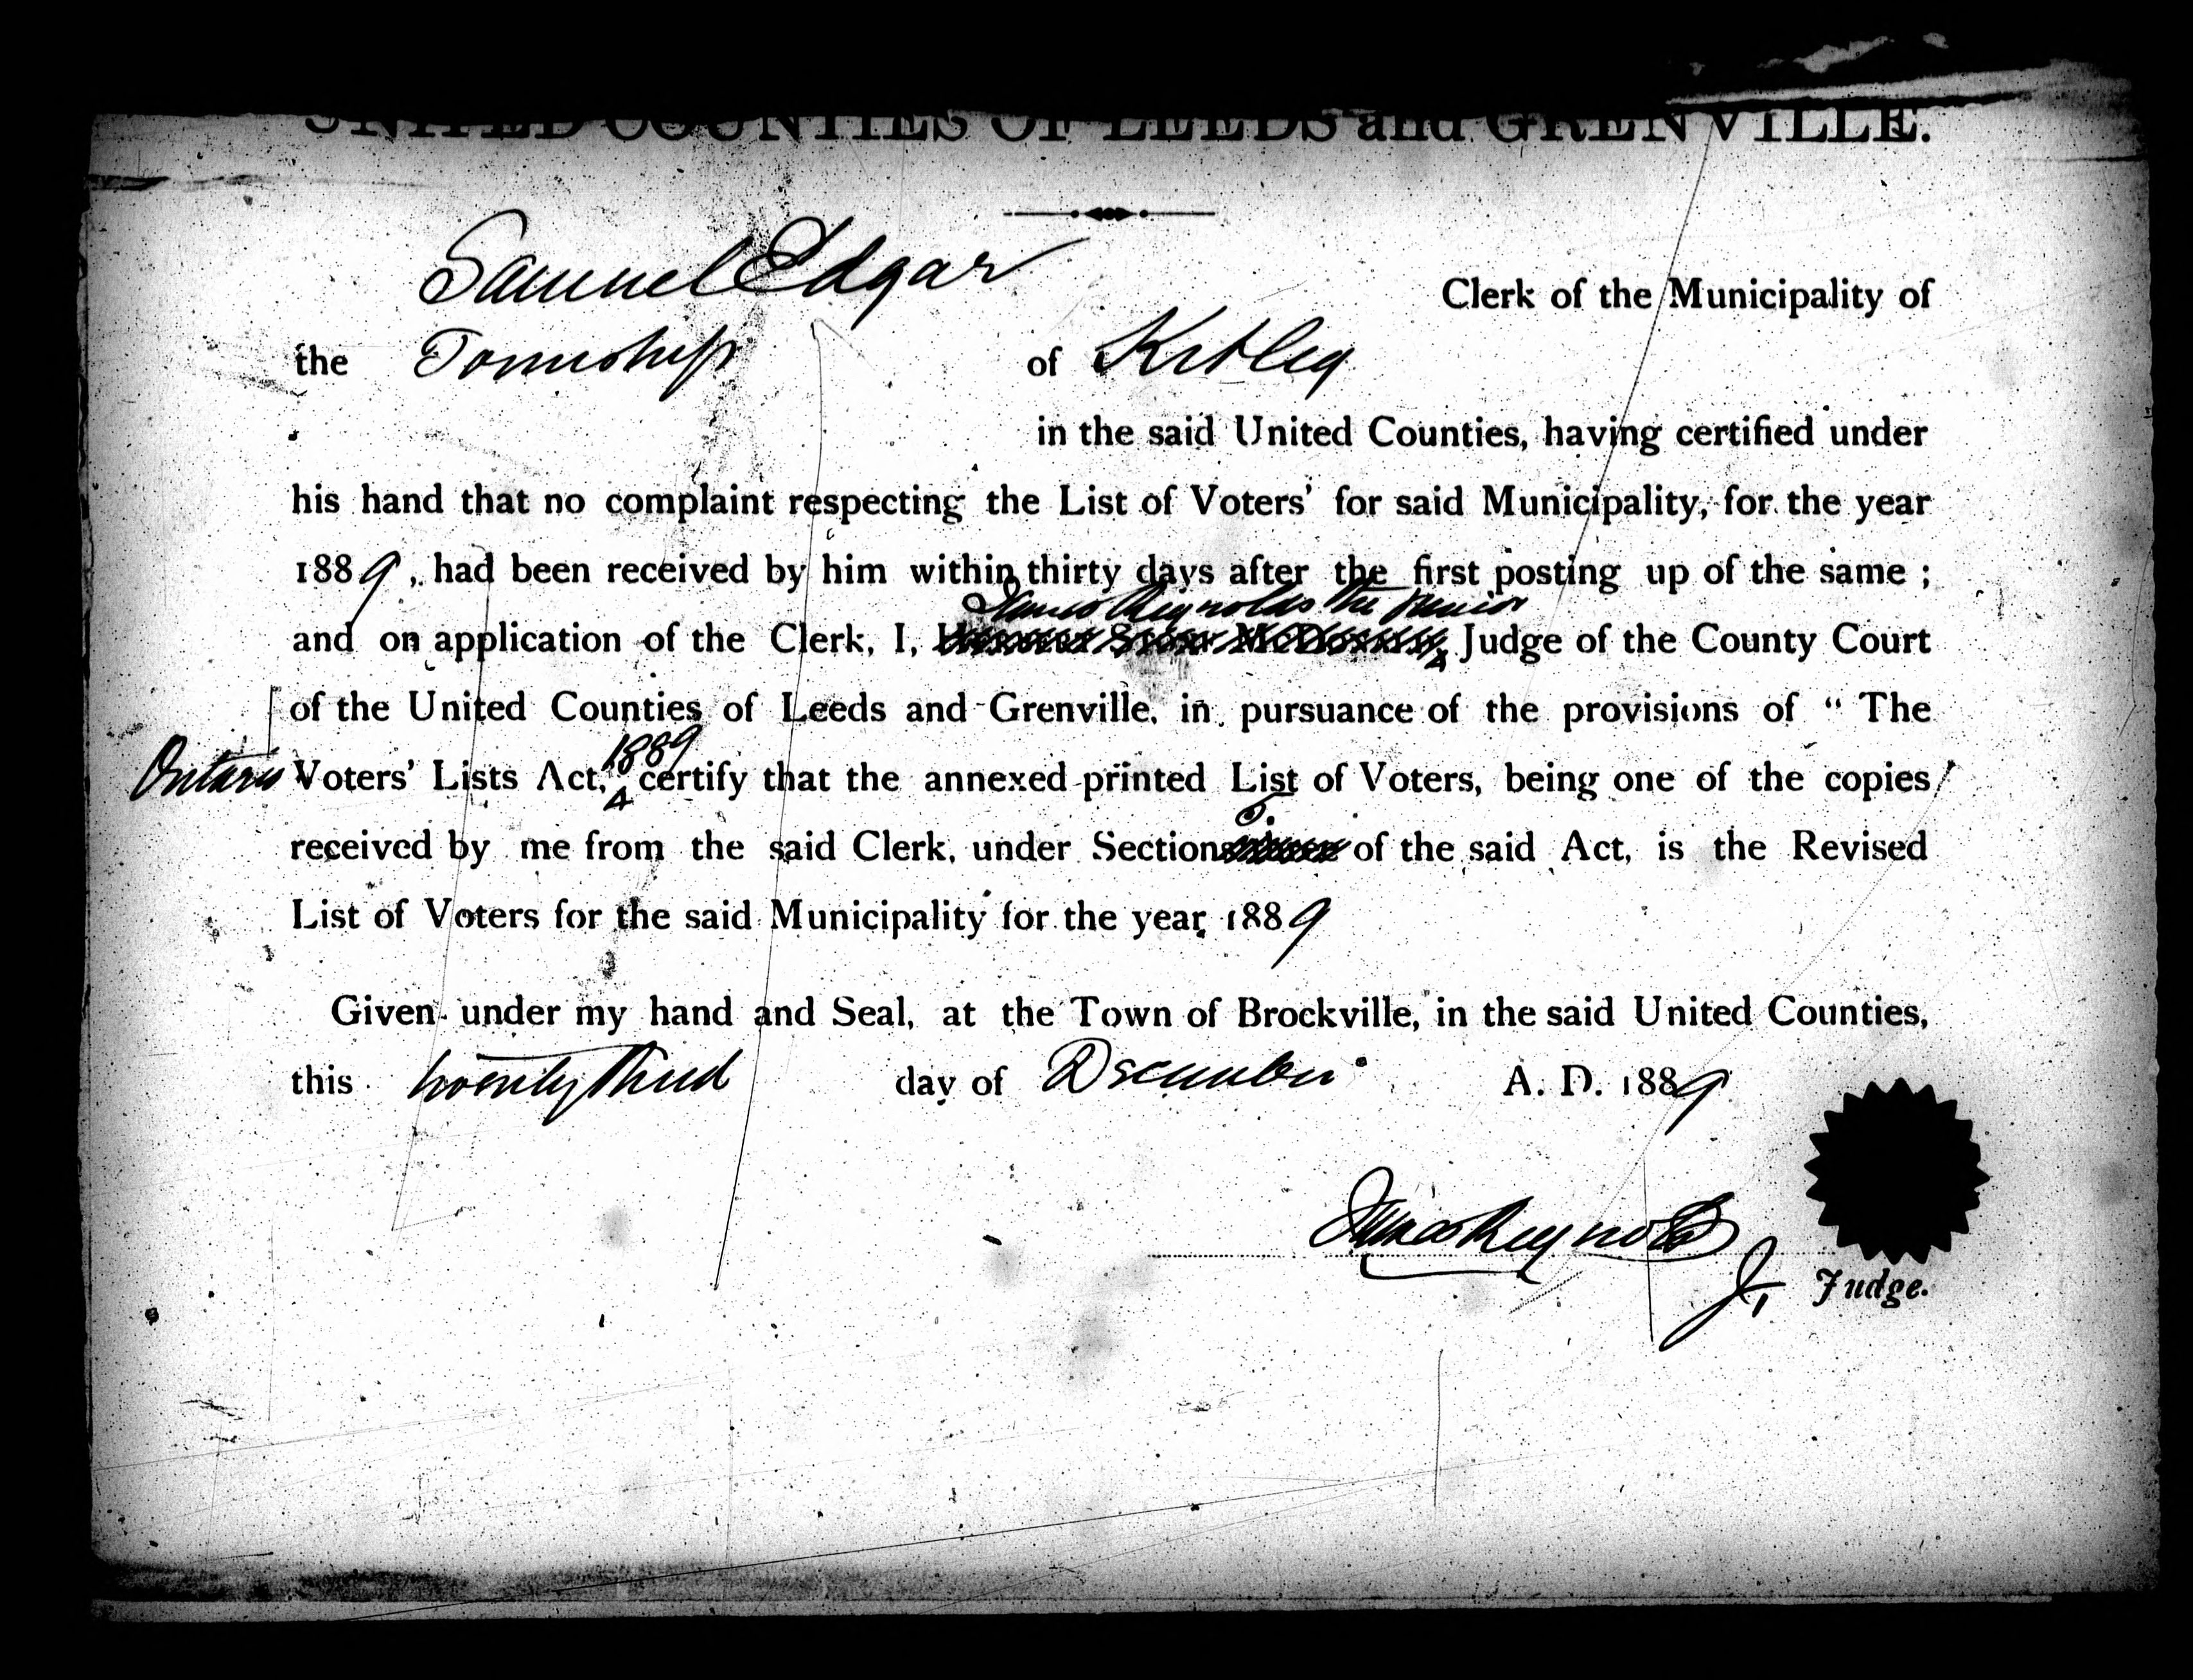 UNITED COUNTIES OF LEEDS and GRENVILLE.
Samuel Edgar Clerk of the Municipality of
the Township of Kitley
in the said United Counties, having certified under
his hand that no complaint respecting the List of Voters' for said Municipality, for the year
1889, had been received by him within thirty days after the first posting up of the same ;
James Reynolds the Junior
and on application of the Clerk, I, Judge of the County Court
of the United Counties of Leeds and Grenville, in pursuance of the provisions of " The
Ontario Voters' Lists Act, 1889 certify that the annexed printed List of Voters, being one of the copies
received by me from the said Clerk, under Section of the said Act, is the Revised
List of Voters for the said Municipality for the year 1889
Given under my hand and Seal, at the Town of Brockville, in the said United Counties,
this twenty third day of December A. D. 1889
James Reynolds
J. Judge.